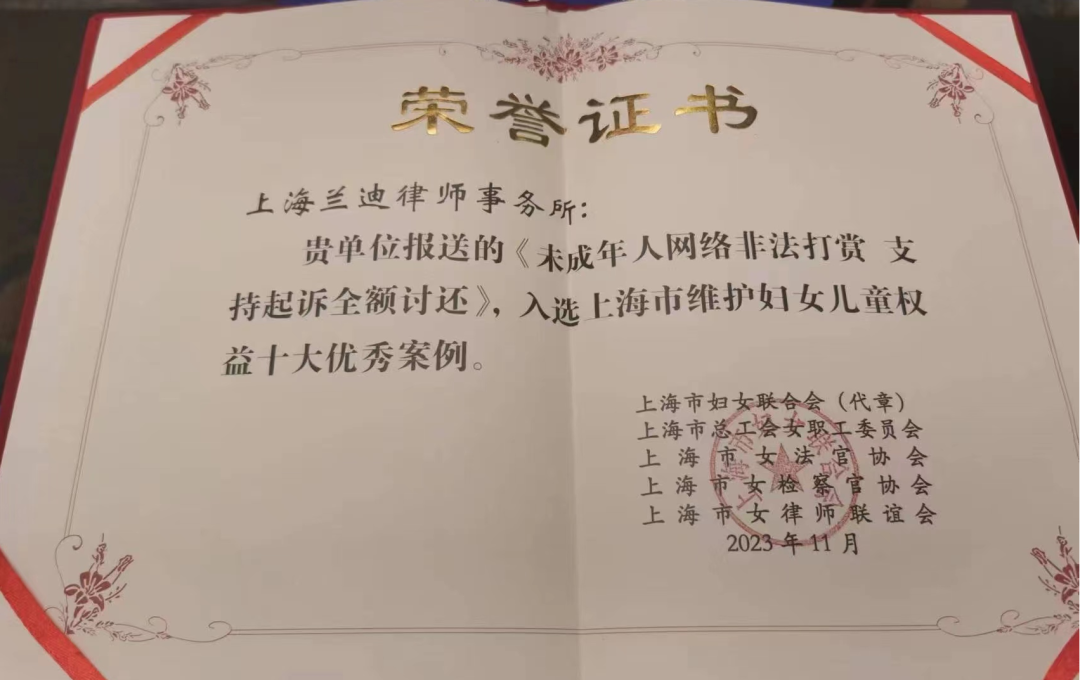 荣誉证书
上海兰迪律师事务所：
贵单位报送的《未成年人网络非法打赏 支
持起诉全额讨还》，入选上海市维护妇女儿童权
益十大优秀案例。
上海市妇女联合会（代章）
上海市总工会女职工委员会
上海市女法官协会
上海市女检察官协会
上海市女律师联谊会
2023年11月
上海市妇女联合会